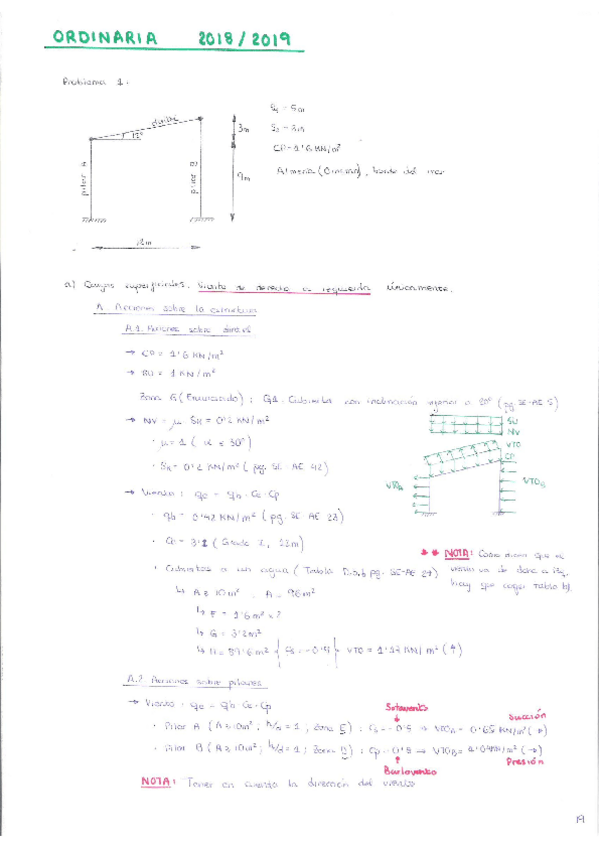 ORDINARIA 2018/2019
Problema 1:
dintel
12°
pilar A
pilar B
3m
9m
12m
S1 = 5m
S2 = 3m
CP = 1'6 KN/m²
Almería (Ciudad), borde del mar
a) Cargas superficiales. Viento de derecha a izquierda únicamente.
A. Acciones sobre la estructura
A.1. Acciones sobre dintel
→ CP = 1'6 KN/m²
→ SU = 1 KN/m²
Zona G : G1. Cubierta con inclinación inferior a 20° (pg. SE-AE 5)
→ NV = μ · SK = 0'2 KN/m²
· μ = 1 (α ≤ 30°)
· SK = 0'2 KN/m² (pg. SE-AE 42)
→ Viento: qe = qb · Ce · Cp
· qb = 0'42 KN/m² (pg. SE-AE 23)
· Ce = 3'1 (Grado I, 12m)
· Cubiertas a un agua (Tabla D.6.b pg. SE-AE 27)
↳ A ≥ 10m² , A = 96m²
↳ F = 1'6m² x 2
↳ G = 3'2m²
SU
NV
VTO
CP
VTOA
VTOB
** NOTA: Como dicen que el viento va de dcha a izq. hay que coger Tabla b).
A.2 Acciones sobre pilares
→ Viento = qe = qb Ce Cp
Sotavento
Succión
· Pilar A (A ≥ 10m²; h/d = 1; zona E) : Cp = -0'5 ⇒ VTOA = 0'65 KN/m² (→)
· Pilar B (A ≥ 10m²; h/d = 1; Zona D) : Cp = 0'8 → VTOB = 1'04 KN/m² (→)
Barlovento
Presión
NOTA: Tener en cuenta la dirección del viento
19